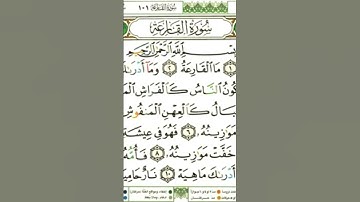 سُورَةُ القَارِعَة ١٠١
سُورَةُ القَارِعَةِ
بِسْمِ اللَّهِ الرَّحْمَٰنِ الرَّحِيمِ
١ مَا الْقَارِعَةُ ٢ وَمَا أَدْرَىٰكَ
كُونُ النَّاسُ كَالْفَرَاشِ الْمَ
بَالُ كَالْعِهْنِ الْمَنفُوشِ
مَوَٰزِينُهُۥ ٦ فَهُوَ فِى عِيشَةٍ
خَفَّتْ مَوَٰزِينُهُۥ ٨ فَأُمُّهُۥ
أَدْرَىٰكَ مَا هِيَهْ ١٠ نَارٌ حَامِيَةٌ